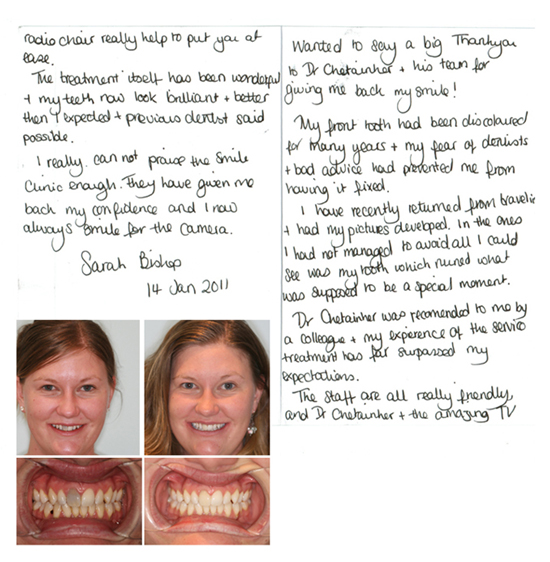 Wanted to say a big Thankyou
to Dr Chetainher + his team for
giving me back my smile!
My front tooth had been discoloured
for many years + my fear of dentists
+ bad advice had prevented me from
having it fixed.
I have recently returned from
+ had my pictures developed. In the ones
I had not managed to avoid all I could
see was my tooth which ruined what
was supposed to be a special moment.
Dr Chetainher was recomended to me by
a colleague + my experence of the service
treatment has far surpassed my
expectations.
The staff are all really friendly,
and Dr Chetainher + the amazing TV
radio chair really help to put you at
ease.
The treatment itself has been wonderful
+ my teeth now look brilliant + better
then I expected + previous dentist said
possible.
I really can not praise the Smile
Clinic enough. They have given me
back my confidence and I now
always smile for the camera.
Sarah Bishop
14 Jan 2011